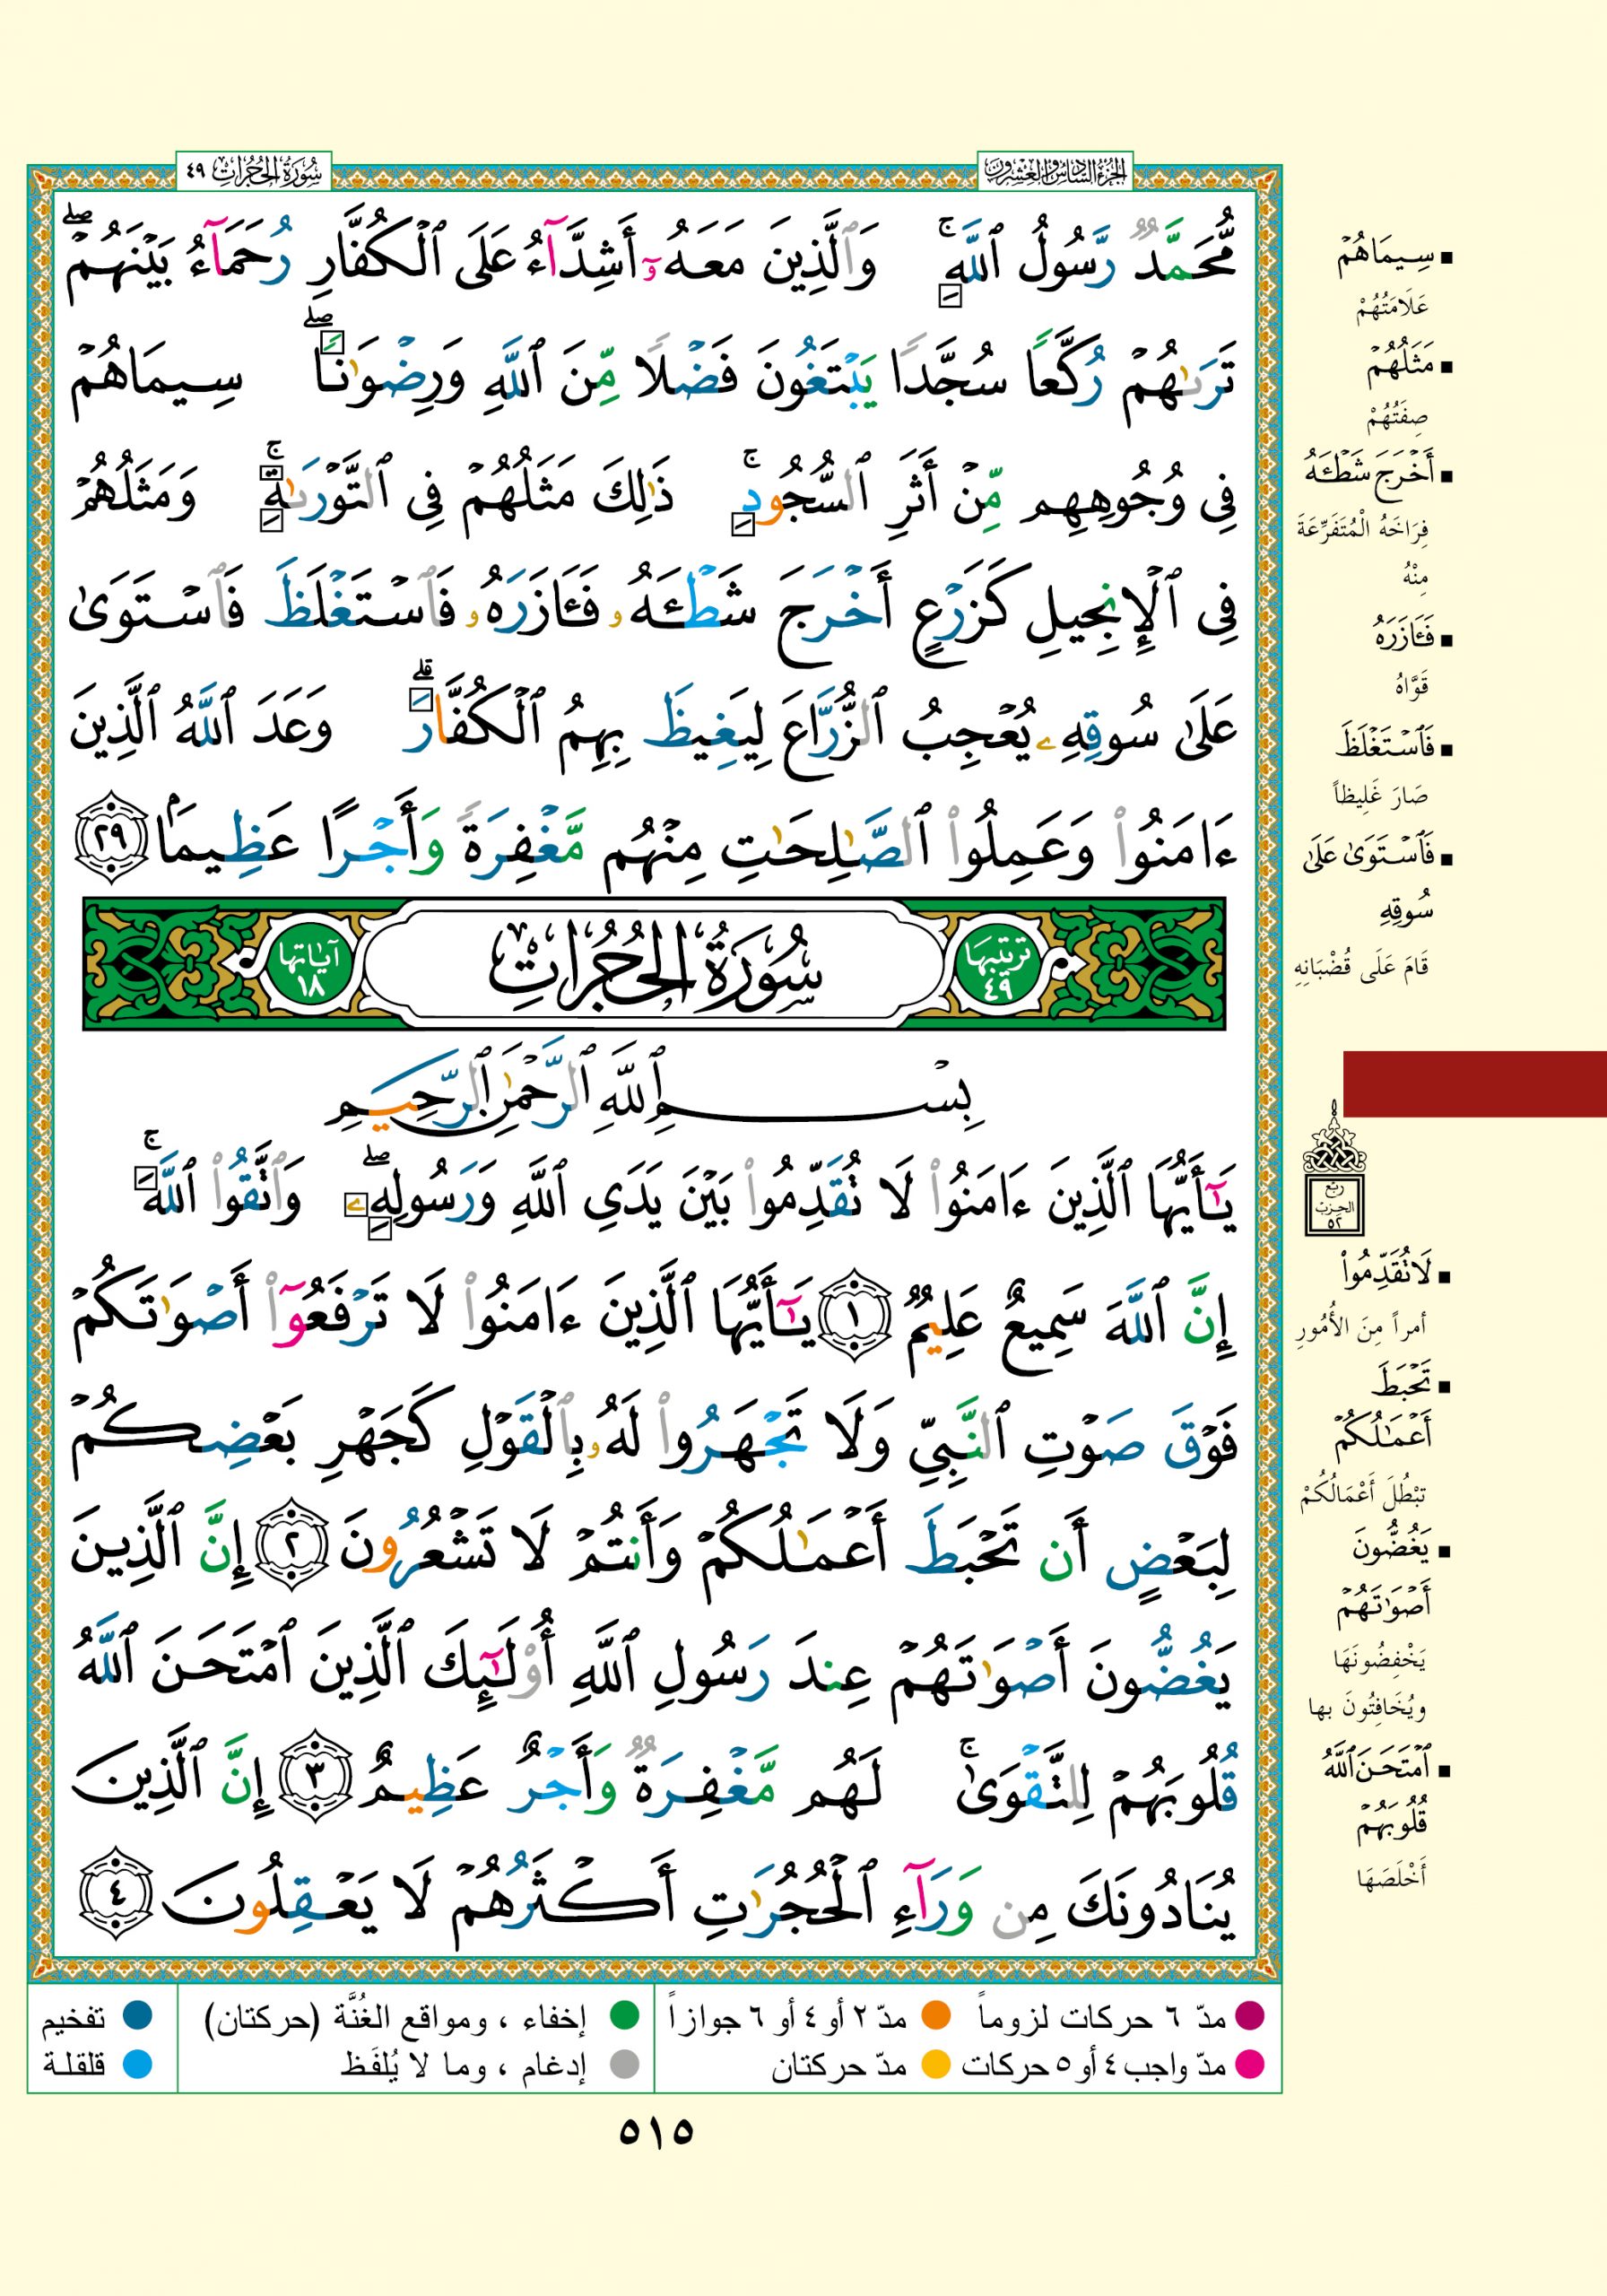 الجزء السادس والعشرون
سورة الحجرات ٤٩
مُّحَمَّدٌ رَّسُولُ ٱللَّهِۚ وَٱلَّذِينَ مَعَهُۥٓ أَشِدَّآءُ عَلَى ٱلْكُفَّارِ رُحَمَآءُ بَيْنَهُمْۖ
تَرَىٰهُمْ رُكَّعًا سُجَّدًا يَبْتَغُونَ فَضْلًا مِّنَ ٱللَّهِ وَرِضْوَٰنًاۖ سِيمَاهُمْ
فِى وُجُوهِهِم مِّنْ أَثَرِ ٱلسُّجُودِۚ ذَٰلِكَ مَثَلُهُمْ فِى ٱلتَّوْرَىٰةِۚ وَمَثَلُهُمْ
فِى ٱلْإِنجِيلِ كَزَرْعٍ أَخْرَجَ شَطْـَٔهُۥ فَـَٔازَرَهُۥ فَٱسْتَغْلَظَ فَٱسْتَوَىٰ
عَلَىٰ سُوقِهِۦ يُعْجِبُ ٱلزُّرَّاعَ لِيَغِيظَ بِهِمُ ٱلْكُفَّارَۗ وَعَدَ ٱللَّهُ ٱلَّذِينَ
ءَامَنُوا۟ وَعَمِلُوا۟ ٱلصَّٰلِحَٰتِ مِنْهُم مَّغْفِرَةً وَأَجْرًا عَظِيمًۢا ٢٩
ترتيبها ٤٩ سُورَةُ الحُجُرَاتِ آياتها ١٨
بِسْمِ ٱللَّهِ ٱلرَّحْمَٰنِ ٱلرَّحِيمِ
يَٰٓأَيُّهَا ٱلَّذِينَ ءَامَنُوا۟ لَا تُقَدِّمُوا۟ بَيْنَ يَدَىِ ٱللَّهِ وَرَسُولِهِۦۖ وَٱتَّقُوا۟ ٱللَّهَۚ
إِنَّ ٱللَّهَ سَمِيعٌ عَلِيمٌ ١ يَٰٓأَيُّهَا ٱلَّذِينَ ءَامَنُوا۟ لَا تَرْفَعُوٓا۟ أَصْوَٰتَكُمْ
فَوْقَ صَوْتِ ٱلنَّبِىِّ وَلَا تَجْهَرُوا۟ لَهُۥ بِٱلْقَوْلِ كَجَهْرِ بَعْضِكُمْ
لِبَعْضٍ أَن تَحْبَطَ أَعْمَٰلُكُمْ وَأَنتُمْ لَا تَشْعُرُونَ ٢ إِنَّ ٱلَّذِينَ
يَغُضُّونَ أَصْوَٰتَهُمْ عِندَ رَسُولِ ٱللَّهِ أُو۟لَٰٓئِكَ ٱلَّذِينَ ٱمْتَحَنَ ٱللَّهُ
قُلُوبَهُمْ لِلتَّقْوَىٰۚ لَهُم مَّغْفِرَةٌ وَأَجْرٌ عَظِيمٌ ٣ إِنَّ ٱلَّذِينَ
يُنَادُونَكَ مِن وَرَآءِ ٱلْحُجُرَٰتِ أَكْثَرُهُمْ لَا يَعْقِلُونَ ٤
سِيمَاهُمْ
عَلَامَتُهُمْ
مَثَلُهُمْ
صِفَتُهُمْ
أَخْرَجَ شَطْـَٔهُ
فِرَاخَهُ الْمُتَفَرِّعَةَ
مِنْهُ
فَـَٔازَرَهُ
قَوَّاهُ
فَٱسْتَغْلَظَ
صَارَ غَلِيظاً
فَٱسْتَوَىٰ عَلَىٰ
سُوقِهِ
قَامَ عَلَى قُضْبَانِهِ
ربع
الحزب
٥٢
لَا تُقَدِّمُوا۟
أمراً مِنَ الأُمُورِ
تَحْبَطَ
أَعْمَٰلُكُمْ
تَبْطُلَ أَعْمَالُكُمْ
يَغُضُّونَ
أَصْوَٰتَهُمْ
يَخْفِضُونَهَا
ويُخَافِتُونَ بها
ٱمْتَحَنَ ٱللَّهُ
قُلُوبَهُمْ
أَخْلَصَهَا
مدّ ٦ حركات لزوماً مدّ ٢ أو ٤ أو ٦ جوازاً إخفاء ، ومواقع الغُنَّة (حركتان) تفخيم
مدّ واجب ٤ أو ٥ حركات مدّ حركتان إدغام ، وما لا يُلفَظ قلقلة
٥١٥